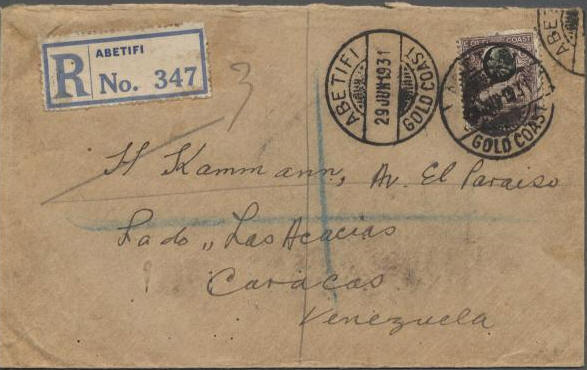 R
ABETIFI
No. 347
3
ABETIFI
29 JUN 1931
GOLD COAST
GOLD COAST
GOLD COAST
ABE
H Kammann, Av. El Paraiso
Lado „ Las Acacias
Caracas
Venezuela